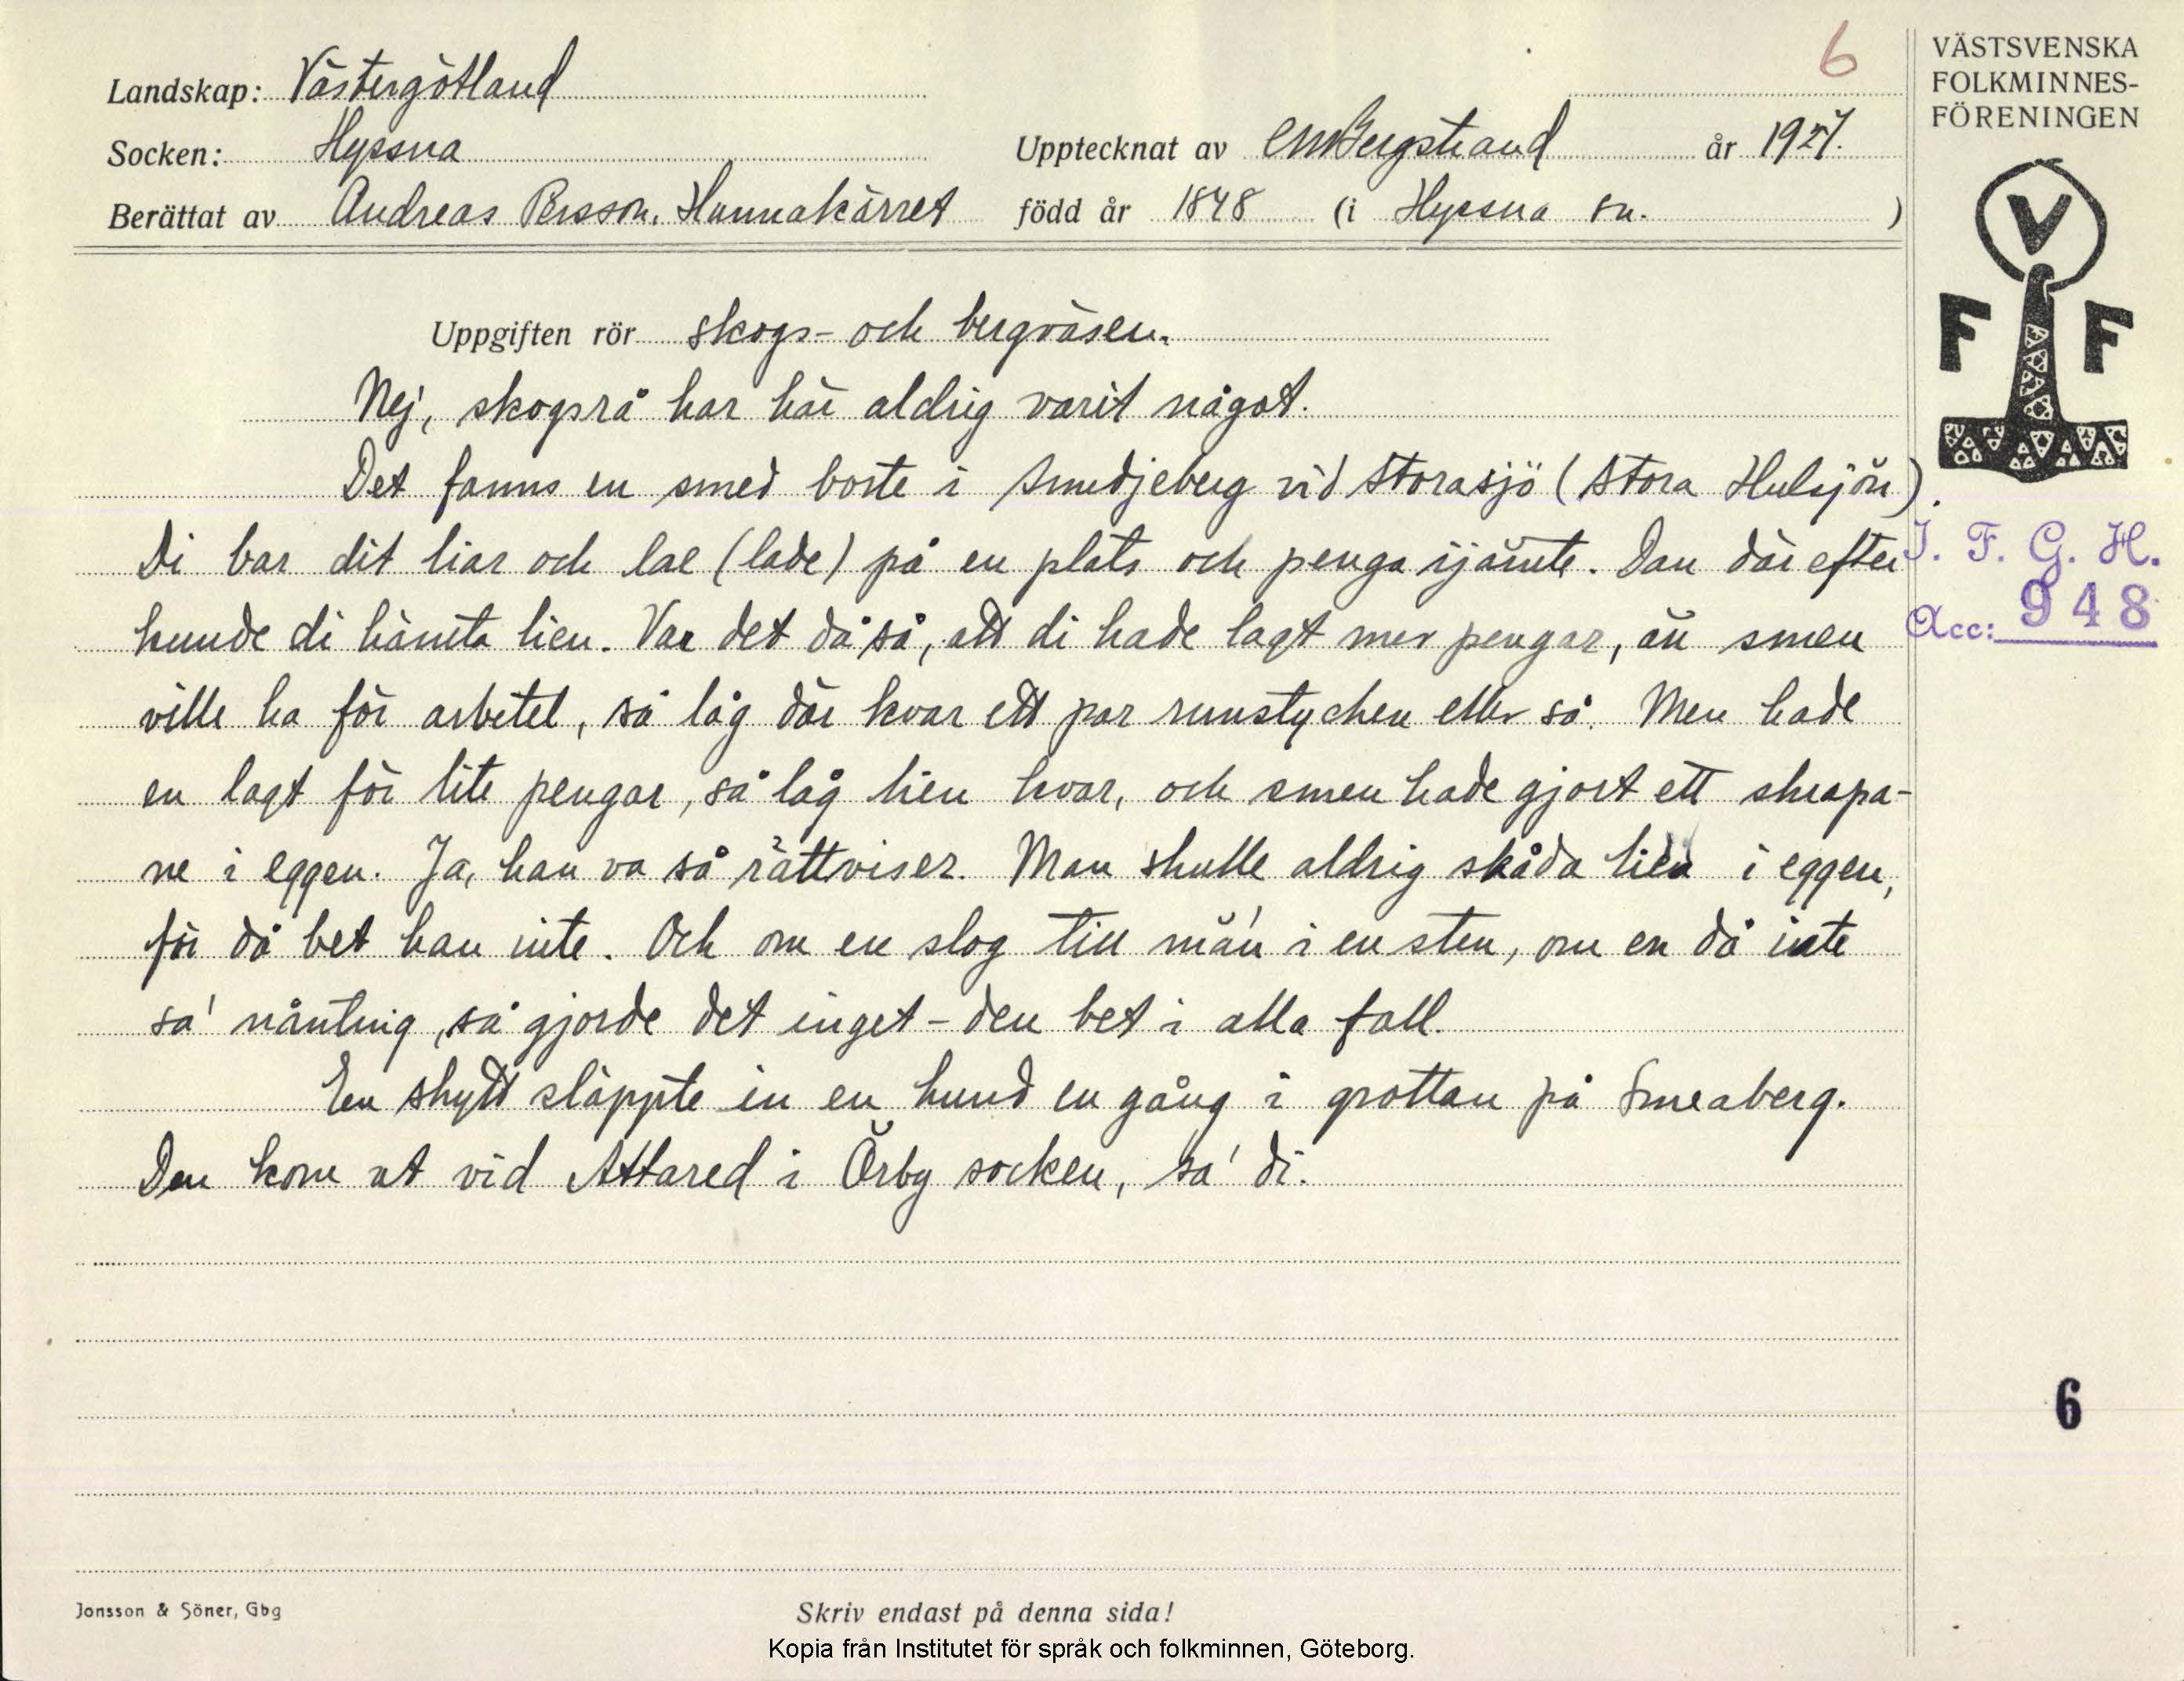 6
VÄSTSVENSKA
FOLKMINNES-
FÖRENINGEN
Landskap: Västergötland
Socken: Hyssna
Upptecknat av CMBergstrand år 1927.
Berättat av Andreas Persson, Hunnakärret född år 1848 (i Hyssna sn. )
V
F F
Uppgiften rör skogs- och bergväsen.
Nej, skogsrå har här aldrig varit något.
Det fanns en smed borte i Smedjeberg vid Storasjö (Stora Hulsjön).
Di bar dit liar och lae (lade) på en plats och penga ijämte. Dan där efter
kunde di hämta lien. Var det då så, att di hade lagt mer pengar, än smen
ville ha för arbetet, så låg där kvar ett par runstycken eller så. Men hade
en lagt för lite pengar, så låg lien kvar, och smen hade gjort ett skrapa-
ne i eggen. Ja, han va så rättviser. Man skulle aldrig skåda lien i eggen,
för då bet han inte. Och om en slog till mä'n i en sten, om en då inte
sa' nånting, så gjorde det inget - den bet i alla fall.
En skytt släppte in en hund en gång i grottan på Smeaberg.
Den kom ut vid Attared i Örby socken, sa' di.
I. F. G. H.
Acc: 948
6
Jonsson & Söner, Gbg
Skriv endast på denna sida!
Kopia från Institutet för språk och folkminnen, Göteborg.